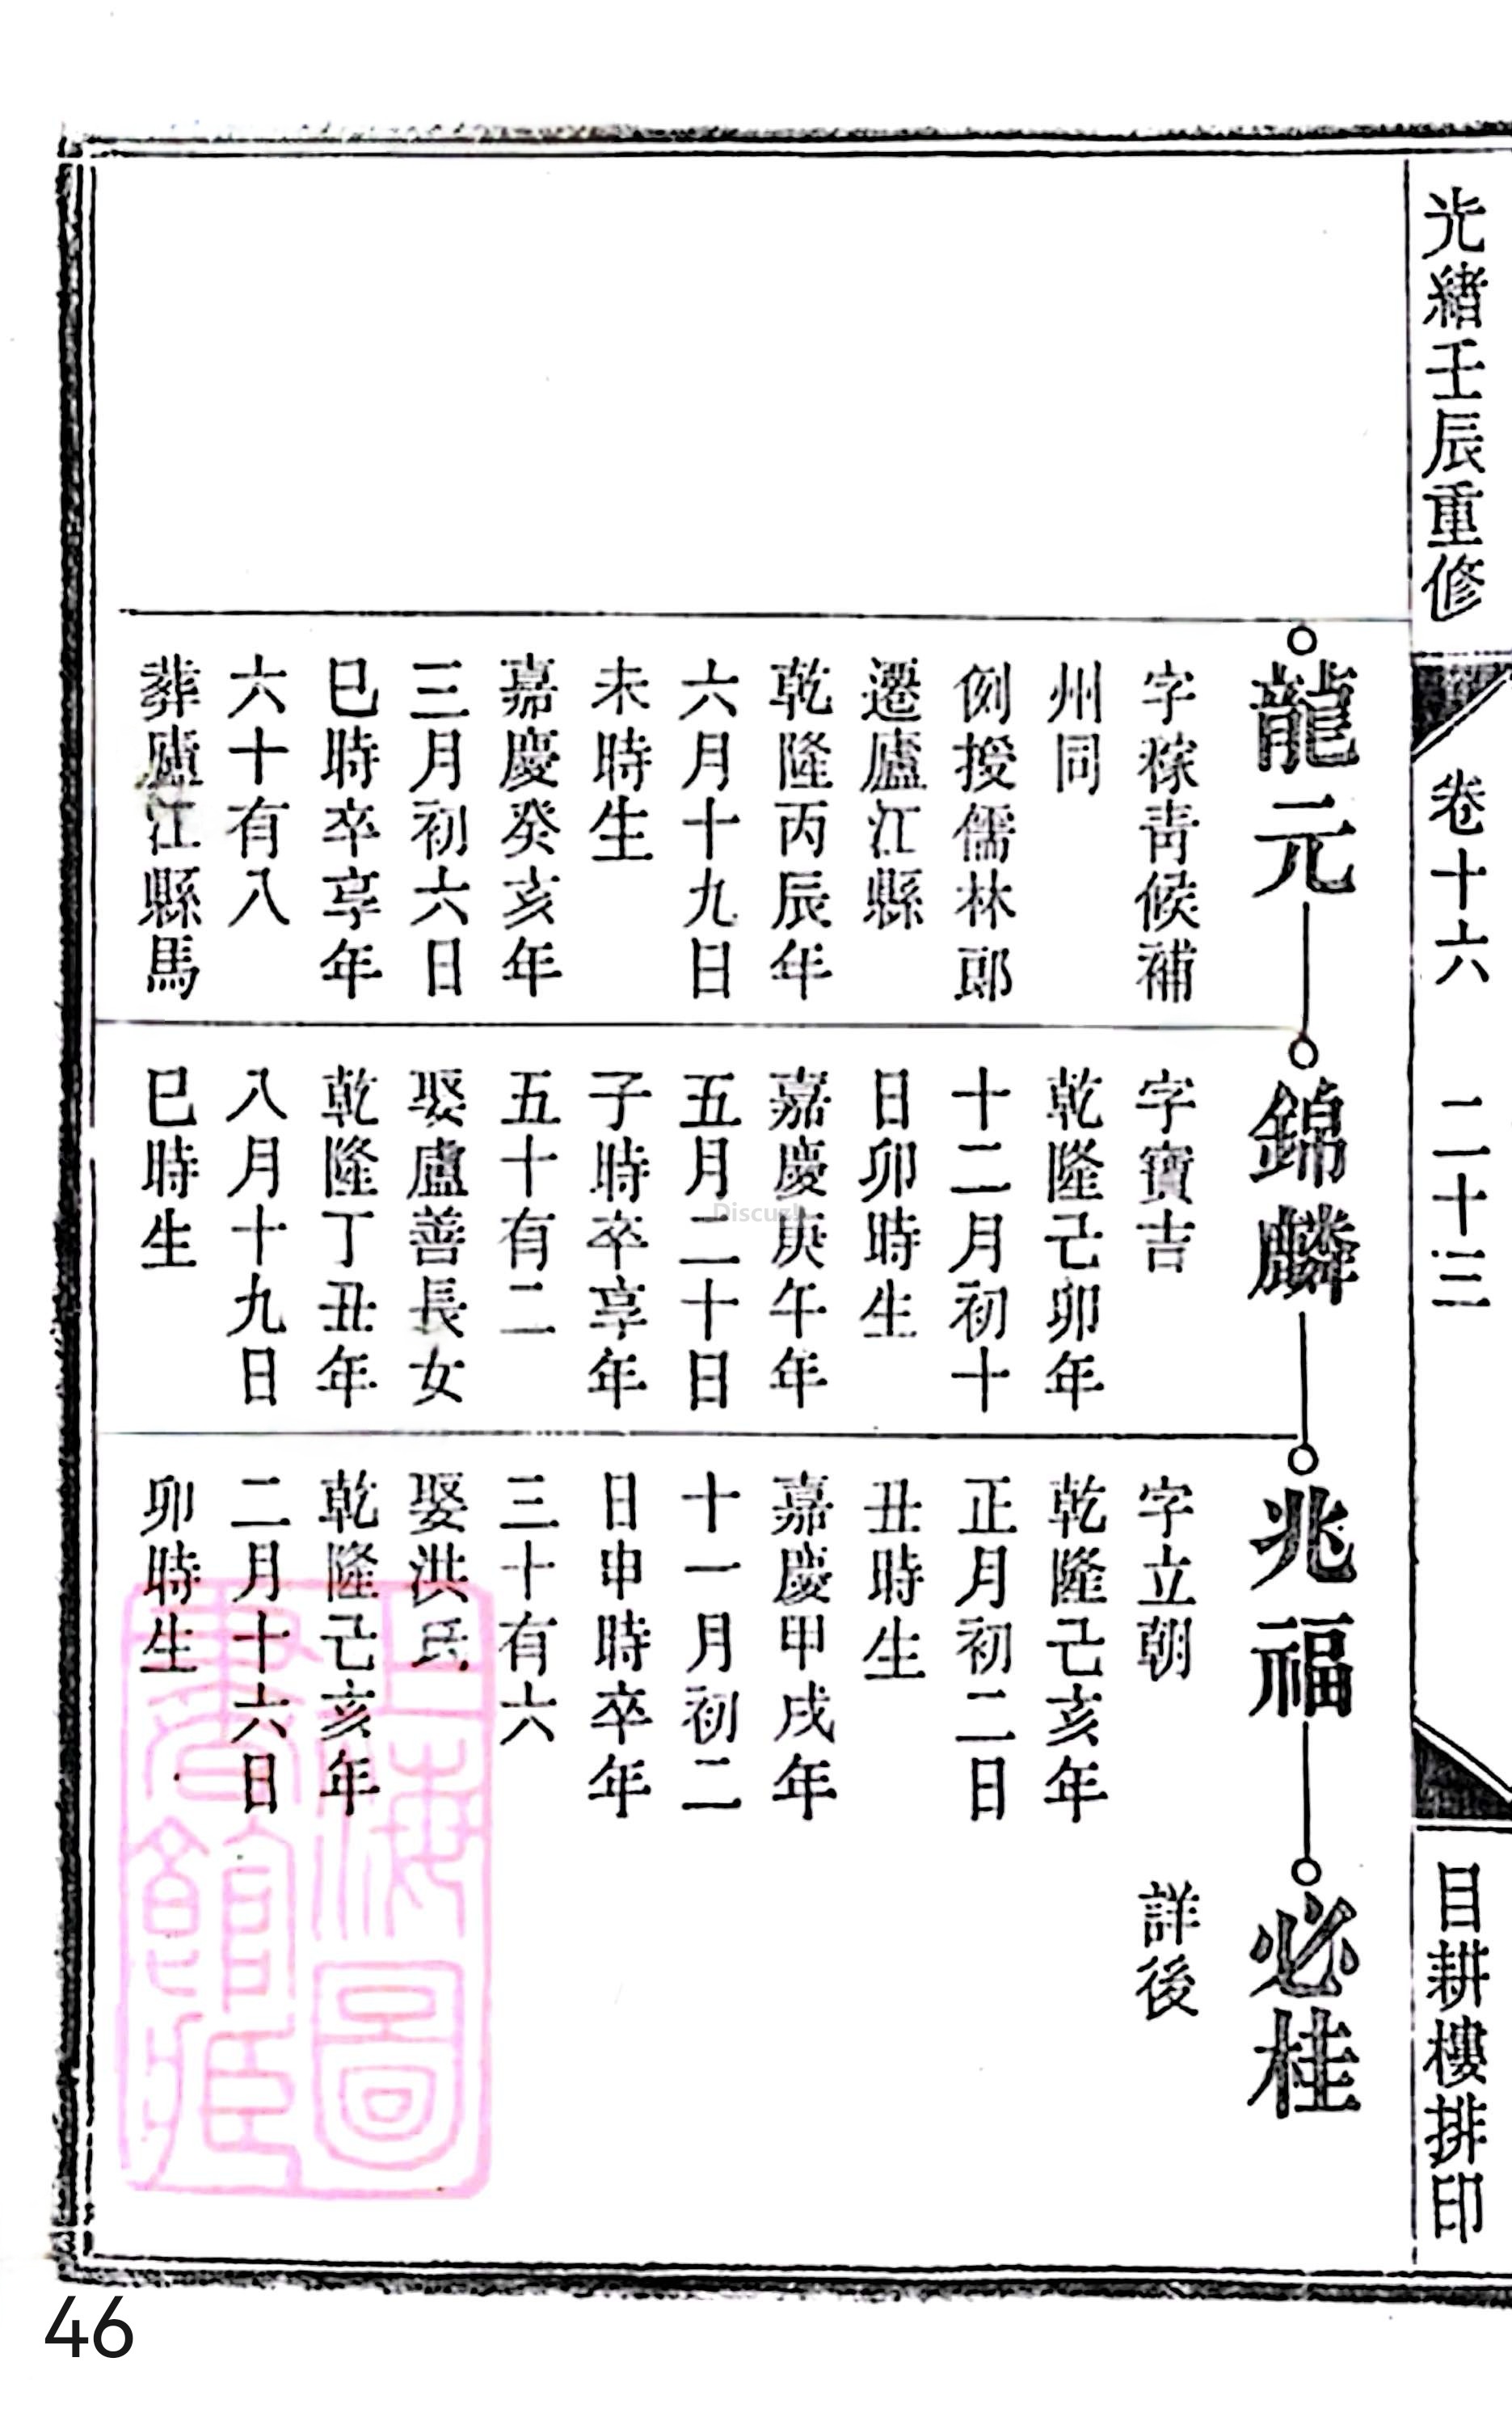 光緒壬辰重修
卷十六
二十三
目耕樓排印
龍元
字稼青候補
州同
例授儒林郎
遷廬江縣
乾隆丙辰年
六月十九日
未時生
嘉慶癸亥年
三月初六日
巳時卒享年
六十有八
葬廬江縣馬
錦麟
字寶吉
乾隆己卯年
十二月初十
日卯時生
嘉慶庚午年
五月二十日
子時卒享年
五十有二
娶盧善長女
乾隆丁丑年
八月十九日
巳時生
兆福
字立朝
乾隆己亥年
正月初二日
丑時生
嘉慶甲戌年
十一月初二
日申時卒年
三十有六
娶洪氏
乾隆己亥年
二月十六日
卯時生
必桂
詳後
上海圖
書館藏
Discuz!
46